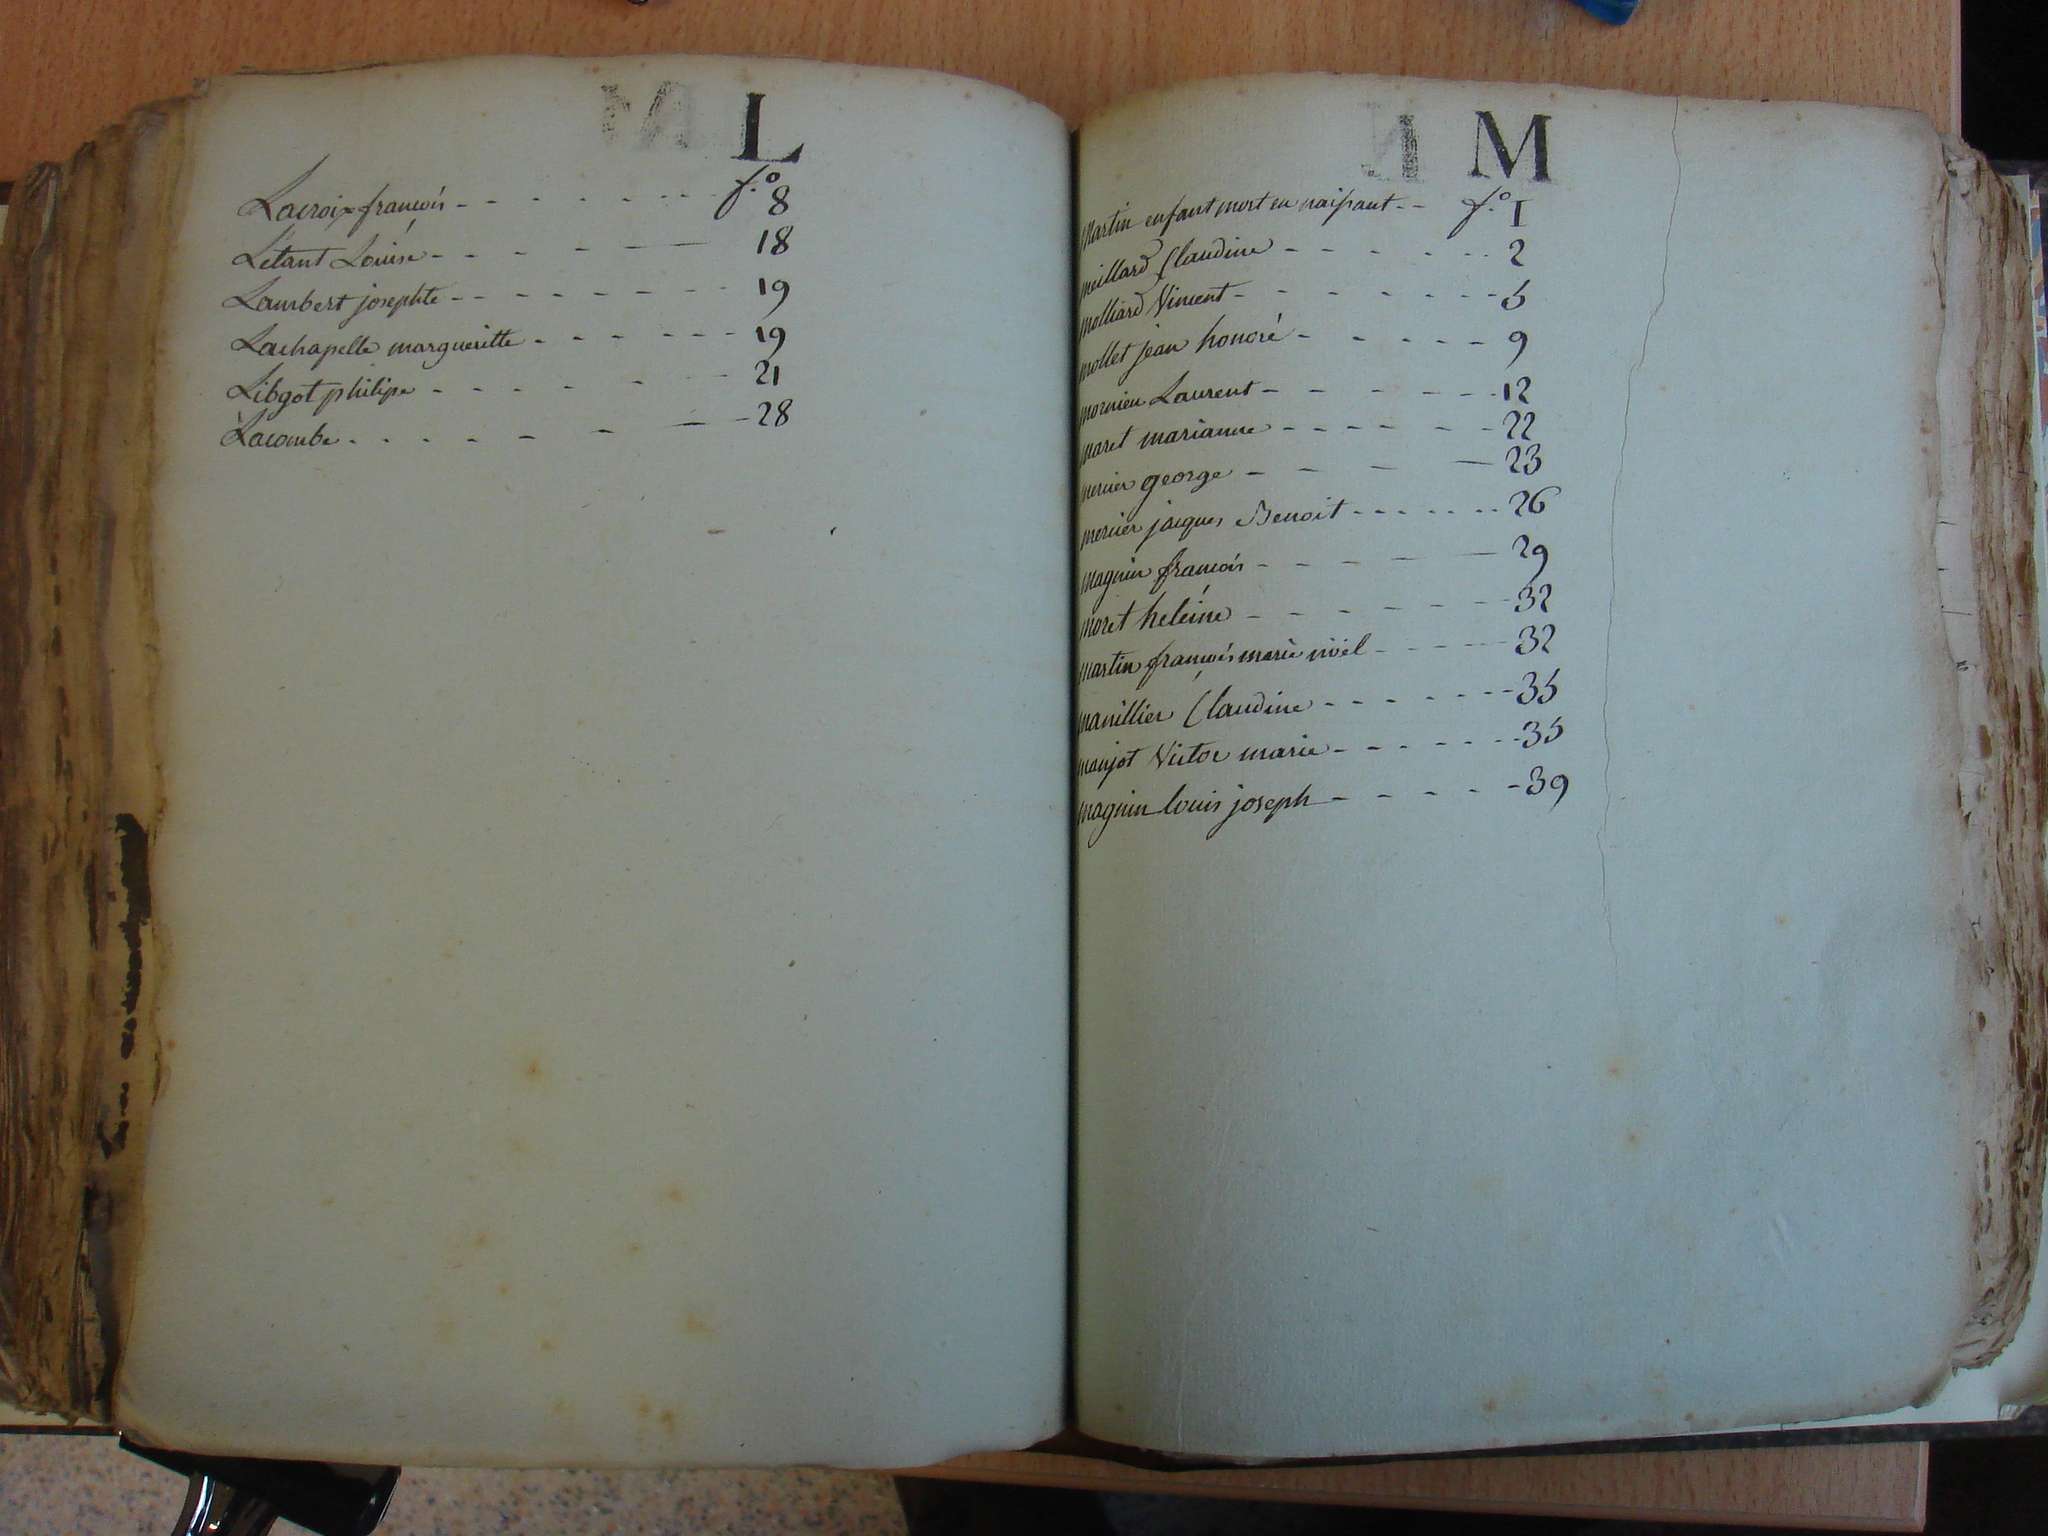 L
f.o
Lacroix francois - - - - - - - 8
Létant Louise - - - - - - 18
Lambert josephte - - - - - - - - 19
Lachapelle margueritte - - - - - - 19
Libgot philipe - - - - - - 21
Lacombe - - - - - - - - 28
M
Martin enfant mort en naissant - - f.o 1
meillard Claudine - - - - - - - 2
molliard Vincent - - - - - - - 5
mollet jean honoré - - - - - - 9
mornieu Laurent - - - - - - - 12
maret marianne - - - - - - - 22
mercier george - - - - - 23
mercier jacques Benoit - - - - - - - 26
magnin francois - - - - - - 29
moret heléine - - - - - - - 32
martin francois marie nöel - - - - - 32
manillier Claudine - - - - - - - 35
manjot Victor marie - - - - - - - 35
magnin louis joseph - - - - - - 39